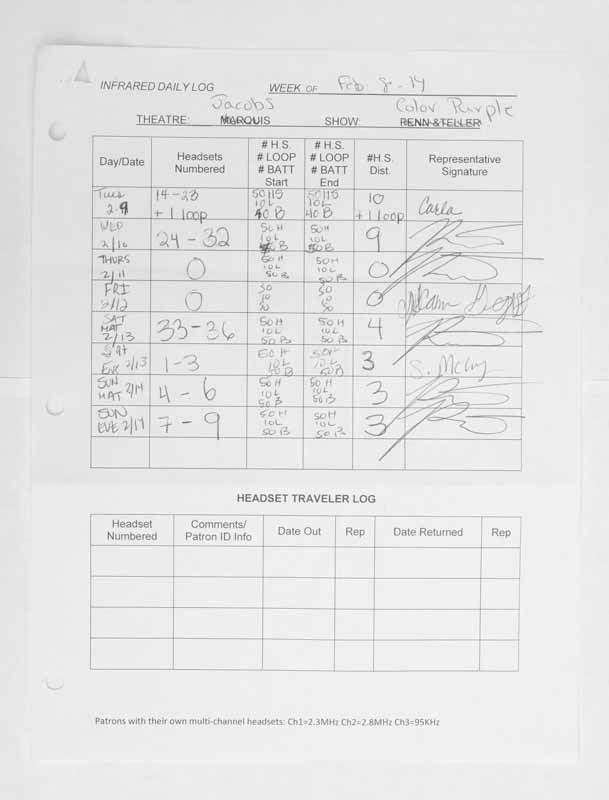 INFRARED DAILY LOG WEEK OF Feb. 8-14
Jacobs Color Purple
THEATRE: MARQUIS SHOW: PENN & TELLER
Day/Date
Headsets Numbered
# H.S. # LOOP # BATT Start
# H.S. # LOOP # BATT End
#H.S. Dist.
Representative Signature
Tues 2.9 14-23 + 1 loop 50 HS 10L 40 B 50 HS 10L 40 B 10 + 1 loop Carla
WED 2/10 24-32 50H 10L 50B 50H 10L 50B 9
THURS 2/11 0 50H 10L 50B 50H 10L 50B 0
FRI 2/12 0 50 10 50 50 10 50 0
SAT MAT 2/13 33-36 50H 10L 50B 50H 10L 50B 4
Sat Eve 2/13 1-3 50H 10L 50B 50H 10L 50B 3
SUN MAT 2/14 4-6 50H 10L 50B 50H 10L 50B 3
SUN EVE 2/14 7-9 50H 10L 50B 50H 10L 50B 3
HEADSET TRAVELER LOG
Headset Numbered
Comments/ Patron ID Info
Date Out
Rep
Date Returned
Rep
Patrons with their own multi-channel headsets: Ch1=2.3MHz Ch2=2.8MHz Ch3=95KHz